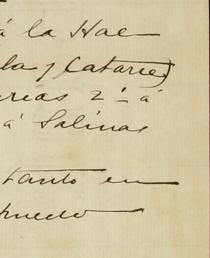 á la Hac
la y Catarre)
rias 2ª á
á Salinas
tanto en
puedo